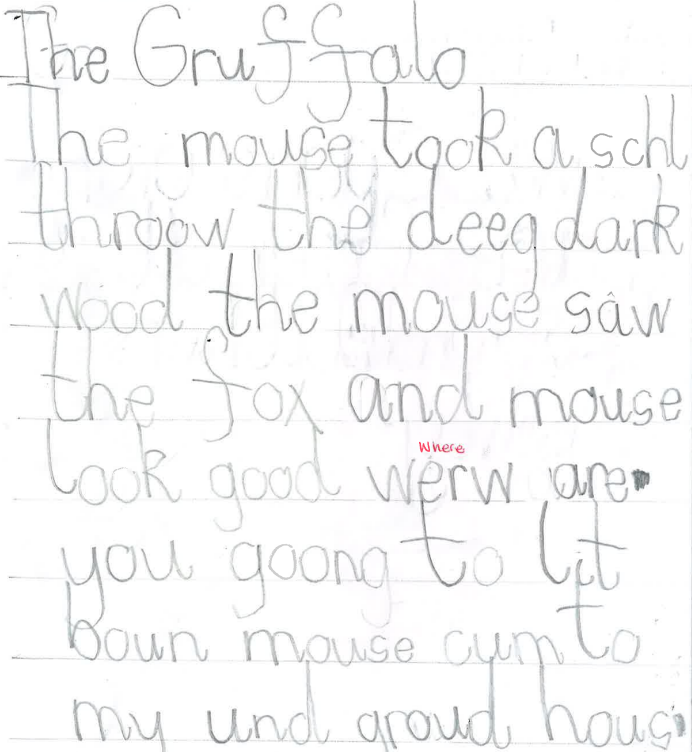 The Gruffalo
The mouse took a schl
throow the deep dark
wood the mouse saw
the fox and mouse
look good
where
werw are
you goong to lit
boun mouse cum to
my und groud hous